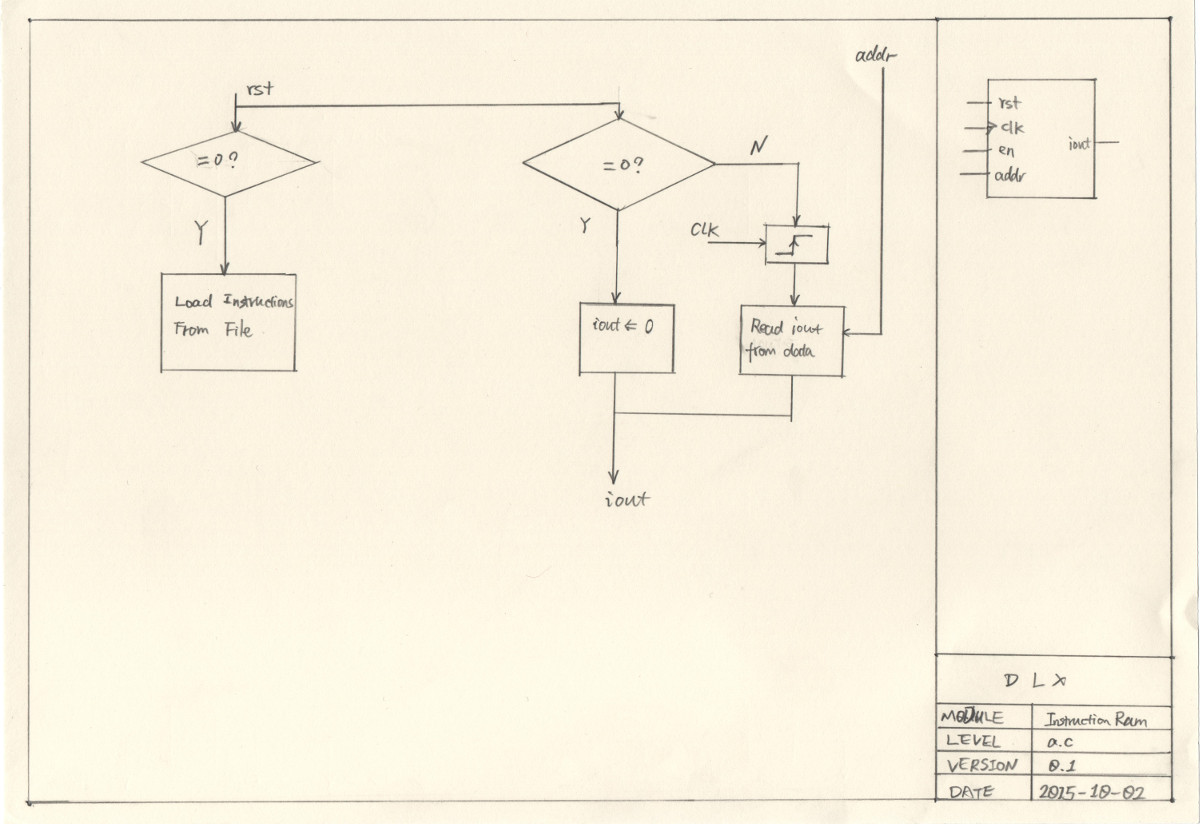 addr
rst
=0?
=0?
N
Y
Y
CLK
Load Instructions
From File
iout ⇐ 0
Read iout
from data
iout
rst
clk
en
addr
iout
DLX
MODULE Instruction Ram
LEVEL a.c
VERSION 0.1
DATE 2015-10-02